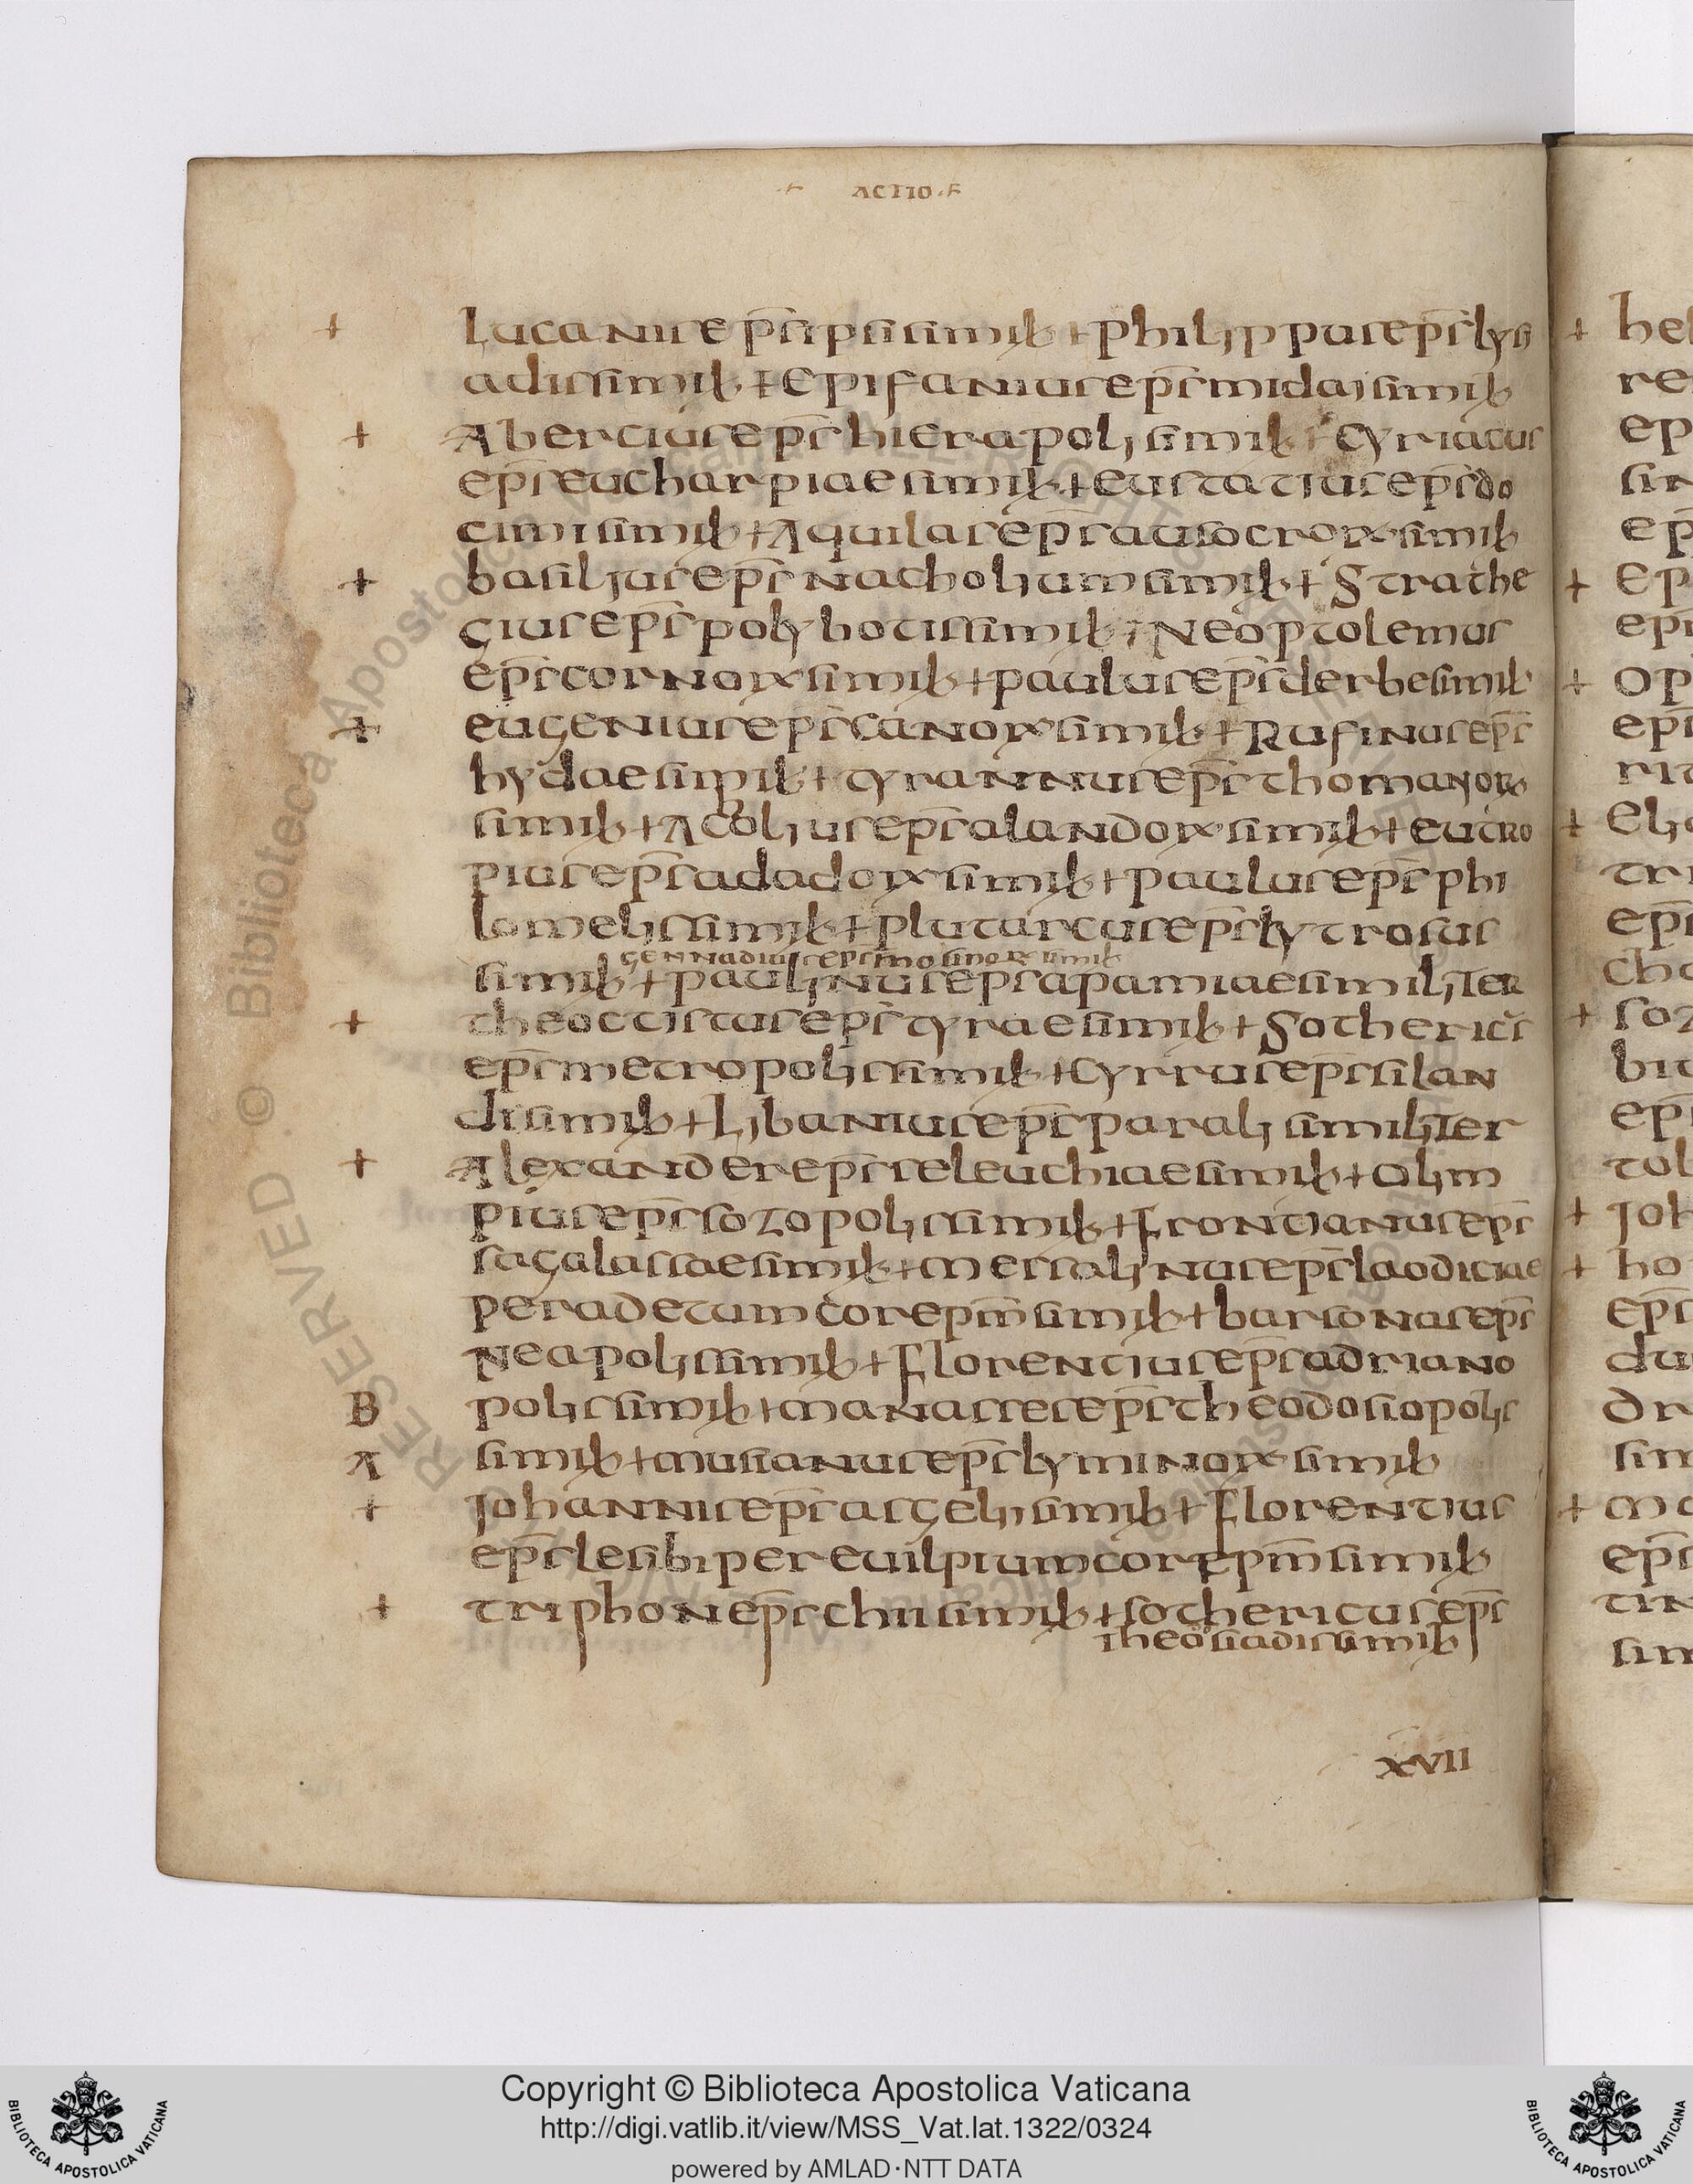 + ACTIO · F
+ Lucanus ep̄s ipsi simiƚ + philippus ep̄s lysi
adis simiƚ + Epifanius ep̄s midai simiƚ
+ Abercius ep̄s hierapoli simiƚ + Cyriacus
ep̄s eucharpiae simiƚ + Eustatius ep̄s do
cimi simiƚ + Aquilas ep̄s ausocroꝝ simiƚ
+ basilius ep̄s Nacholium simiƚ + Strathe
gius ep̄s polybotis simiƚ + Neoptolemus
ep̄s cornoꝝ simiƚ + paulus ep̄s derbe simiƚ
+ eugenius ep̄s canoꝝ simiƚ + Rufinus ep̄s
hydae simiƚ + tyrannus ep̄s thomanoꝝ
simiƚ + Acolius ep̄s alandoꝝ simiƚ + eutro
pius ep̄s adadoꝝ simiƚ + paulus ep̄s phi
lomelis simiƚ + plutarcus ep̄s lytrosus
gennadius ep̄s mosinoꝝ simiƚ
simiƚ + paulinus ep̄s apamiae similiter
+ theoctistus ep̄s tyrae simiƚ + Sotherics
ep̄s metropolis simiƚ + Cyrrus ep̄s silan
di simiƚ + Libanius ep̄s parali similiter
+ Alexander ep̄s seleuchiae simiƚ + Olim
pius ep̄s sozopolis simiƚ + Frontianus ep̄s
sagalassae simiƚ + messalinus ep̄s laodiciae
per adetum corep̄m simiƚ + barsonas ep̄s
Neapolis simiƚ + Florentius ep̄s adriano
B polis simiƚ + manasses ep̄s theodosiopolis
A simiƚ + musianus ep̄s lyminoꝝ simiƚ
+ Johannis ep̄s asgeli simiƚ + Florentius
ep̄s lesibi per euilpium corepm̄ simiƚ
+ triphon ep̄s chii simiƚ + sothericus ep̄s
theosiadis simiƚ
XVII
+ hel
re
ep
sin
ep
+ Ep
epi
+ op
epi
rit
+ Eli
tri
ep̄s
cho
+ soz
bit
epi
tol
+ Joh
+ ho
ep̄s
du
dr
sim
+ ma
ep̄s
tin
sim
Copyright © Biblioteca Apostolica Vaticana
http://digi.vatlib.it/view/MSS_Vat.lat.1322/0324
powered by AMLAD·NTT DATA
BIBLIOTECA APOSTOLICA VATICANA
BIBLIOTECA APOSTOLICA VATICANA